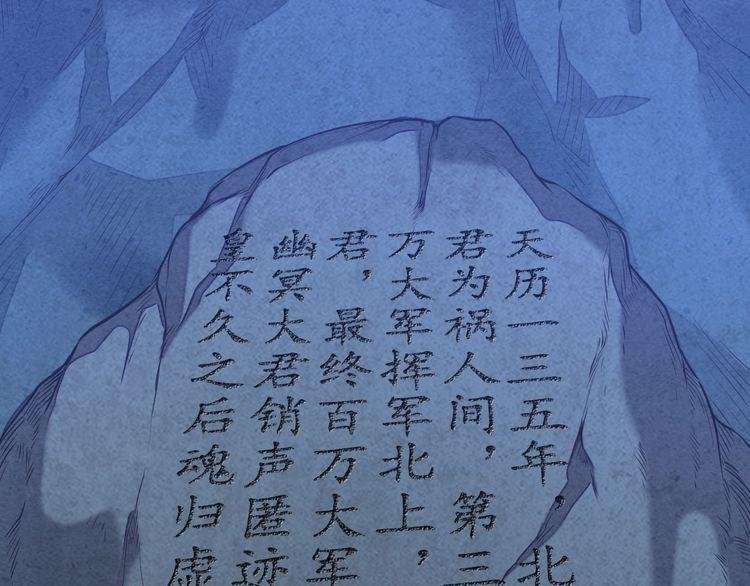 天历一三五年，北
君为祸人间，第三
万大军挥军北上，
君，最终百万大军
幽冥大君销声匿迹
皇不久之后魂归虚